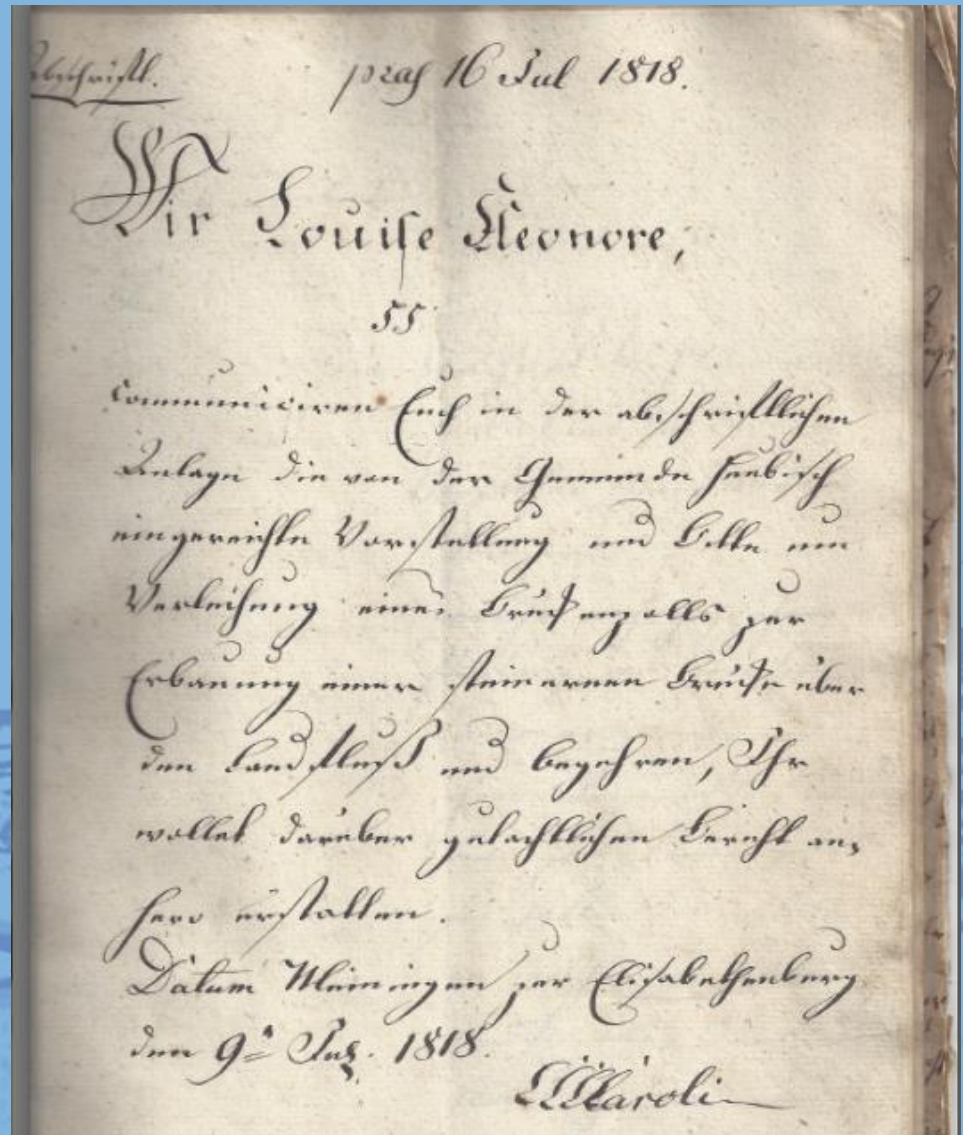 Abschriftl. praes 16 Jul 1818.
Wir Louise Eleonore,
communiciren Euch in der abschriftlichen
Anlage die von der Gemeinde Heubisch
eingereichte Vorstellung und Bitte um
Verleihung eines Brückenzolls zur
Erbauung einer steinernen Brücke über
den Landfluß und begehren, Ihr
wollet darüber gutachtlichen Bericht an-
hero erstatten.
Datum Meiningen zur Elisabethenburg
den 9n Jul. 1818.